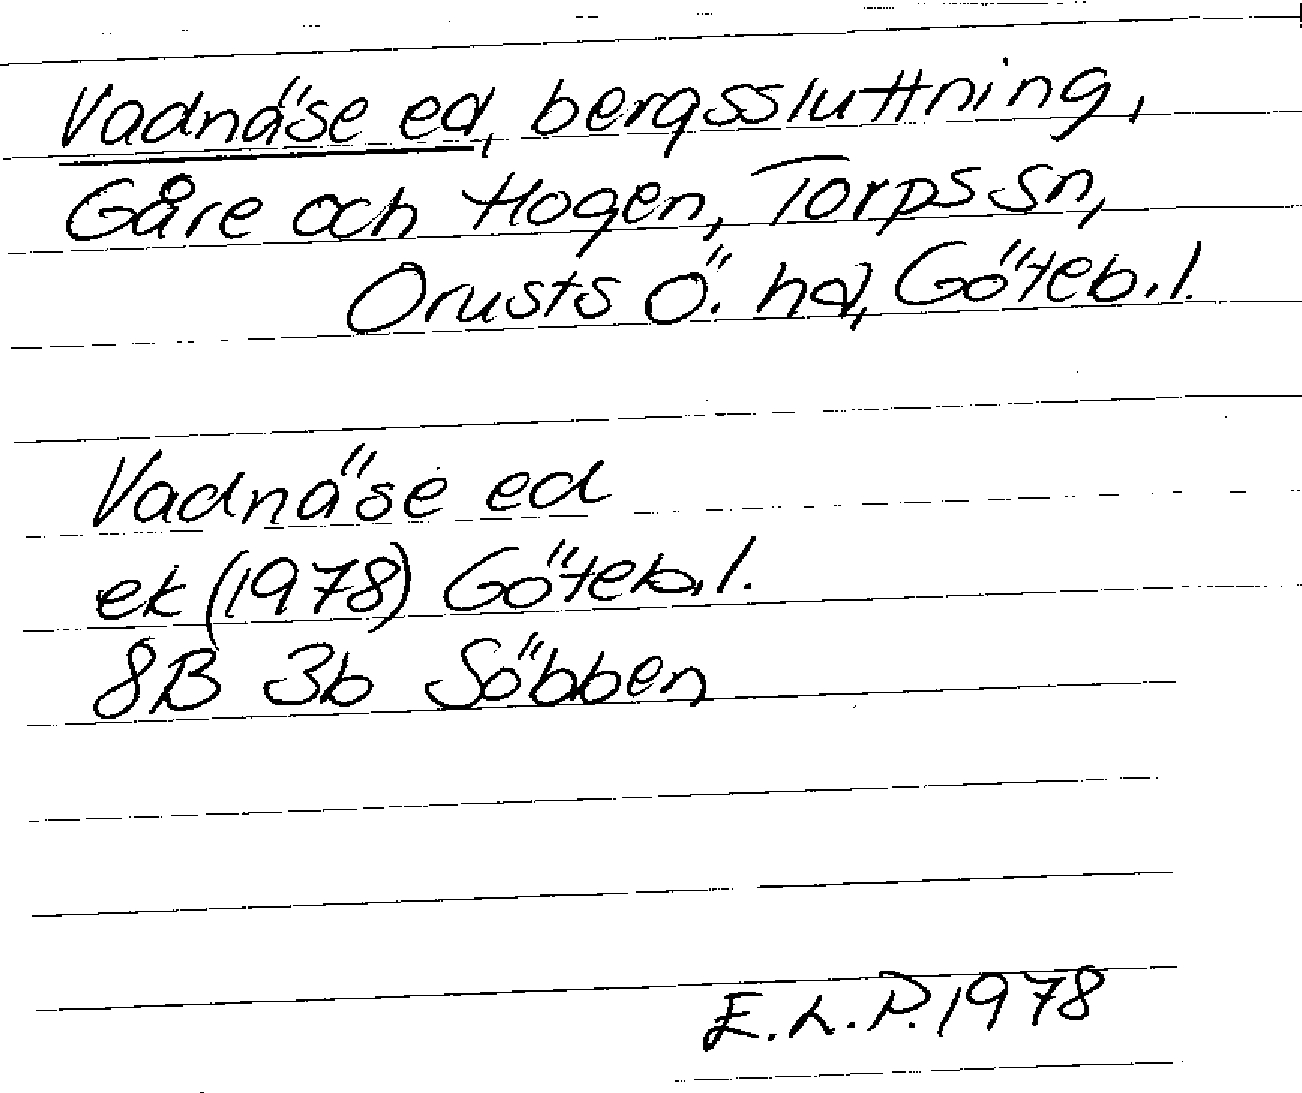 Vadnäse ed, bergssluttning,
Gåre och Hogen, Torps sn,
Orusts Ö. hd, Göteb.l.
Vadnäse ed
ek (1978) Göteb.l.
8B 3b Söbben
E.L.P. 1978